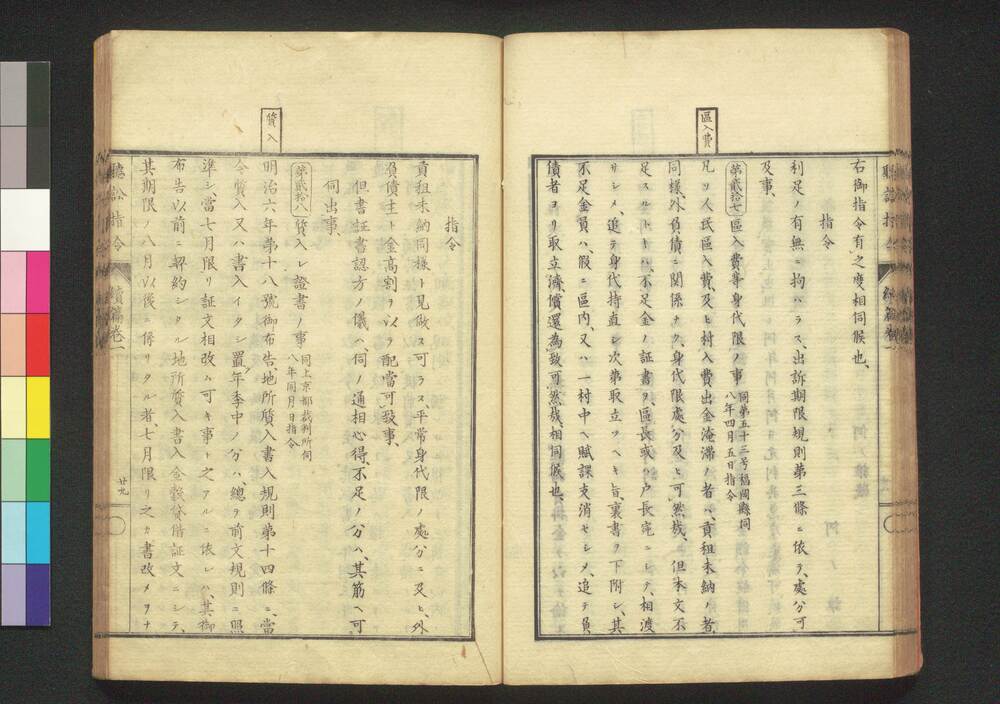 右御指令有之度相伺候也、
指令
利足ノ有無ニ拘ハラス、出訴期限規則第三條ニ依テ、處分可
及事、
區入費
第貳拾七 區入費等身代限ノ事 同第五十三号福岡縣伺 八年四月五日指令
凡ソ人民區入費、及ヒ村入費出金淹滞ノ者ハ、貢租未納ノ者
同様、外負債ニ関係ナク、身代限處分及ヒ可然哉、但本文不
足スルトキハ、不足金ノ証書ヲ、區長或ハ戸長宛ニシテ、相渡
サシメ、追テ身代持直シ次第取立ツヘキ旨、裏書ヲ下附シ、其
不足金員ハ、假ニ區内、又ハ一村中ヘ賦課支消セシメ、追テ負
債者ヨリ取立、濟償還為致可然哉、相伺候也、
聽訟指令 續篇卷一
指令
貢租未納同様ト見做ス可ラス、平常身代限ノ處分ニ及ヒ、外
負債主ト金高割ヲ以テ配當可致事、
但書証書認方ノ儀ハ、伺ノ通相心得、不足ノ分ハ、其筋ヘ可
伺出事、
質入
第貳拾八 質入レ證書ノ事 同上京都裁判所伺 八年同月日指令
明治六年第十八號御布告、地所質入書入規則第十四條ニ、當
今質入又ハ書入イタシ置、年季中ノ分ハ、總テ前文規則ニ照
準シ、當七月限リ証文相改ム可キ事ト之アルニ依レハ、其御
布告以前ニ契約シタル地所質入書入金穀貸借証文ニシテ、
其期限ノ八月以後ニ係リタル者、七月限リ之カ書改メヲナ
聽訟指令 續篇卷一 廿九